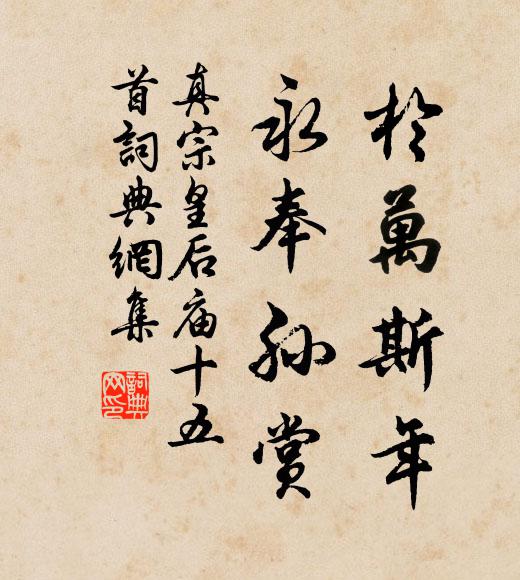 於萬斯年
永奉孫賞
真宗皇后庙十五
首詞典網集
詞典
网印